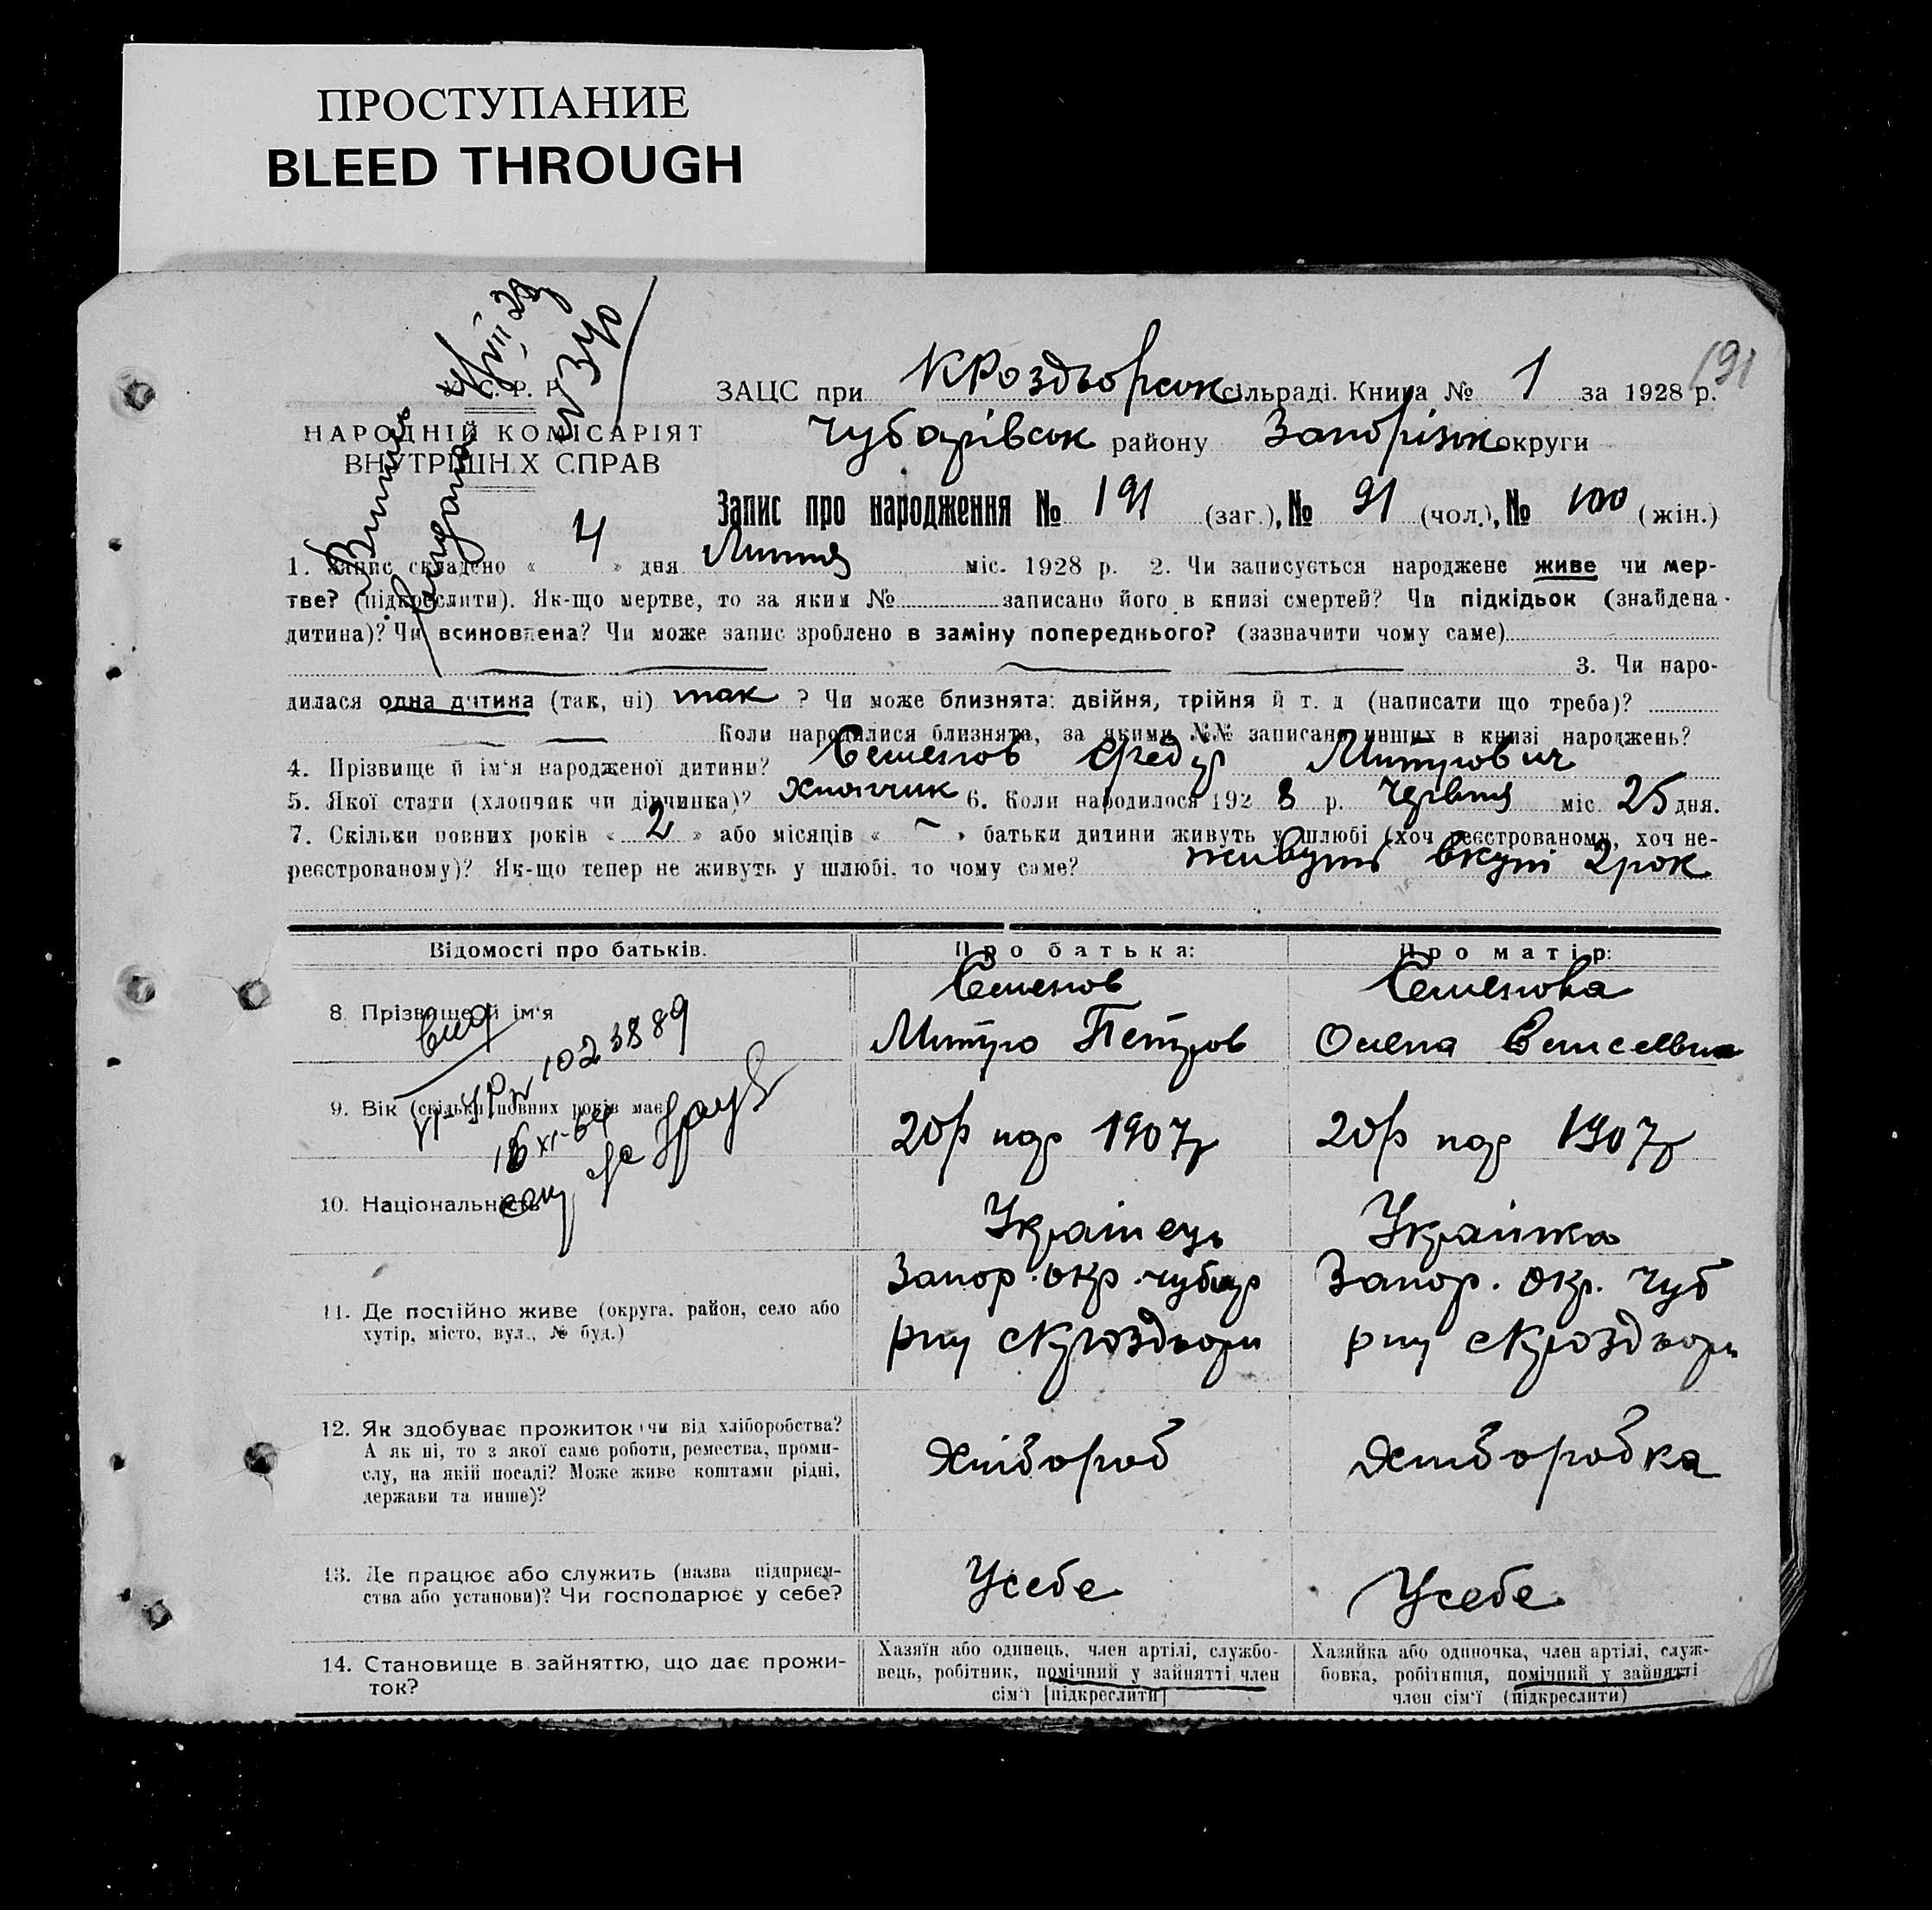 ПРОСТУПАНИЕ
BLEED THROUGH
191
У. С. Р. Р.
НАРОДНІЙ КОМІСАРІЯТ
ВНУТРІШНІХ СПРАВ
№ 340
ЗАЦС при КРоздорськ сільраді. Книга № 1 за 1928 р.
Чубарівськ району Запоріжж округи
Запис про народження № 191 (заг.), № 91 (чол.), № 100 (жін.)
1. Запис складено « 4 » дня Липня міс. 1928 р. 2. Чи записується народжене живе чи мер-
тве? (підкреслити). Як-що мертве, то за яким № записано його в книзі смертей? Чи підкідьок (знайдена
дитина)? Чи всиновлена? Чи може запис зроблено в заміну попереднього? (зазначити чому саме)
3. Чи наро-
дилася одна дитина (так, ні) так ? Чи може близнята: двійня, трійня й т. д (написати що треба)?
Коли народилися близнята, за якими №№ записано инших в книзі народжень?
4. Прізвище й ім'я народженої дитини? Семенов Федір Митрович
5. Якої стати (хлопчик чи дівчинка)? Хлопчик 6. Коли народилося 192 8 р. Червня міс. 25 дня.
7. Скільки повних років « 2 » або місяців « — » батьки дитини живуть у шлюбі (хоч реєстрованому, хоч не-
реєстрованому)? Як-що тепер не живуть у шлюбі, то чому саме? живуть вкупі 2 рок
Відомості про батьків.
Про батька:
Про матір:
8. Прізвище й ім'я
Семенов
Митро Петров
Семенова
Олена
9. Вік (скільки повних років має
1023889
20р нар 1907р
20р нар 1907р
10. Національність
Українець
Українка
11. Де постійно живе (округа. район, село або
хутір, місто, вул., № буд.)
Запор. окр. чубар
рну сКроздори
Запор. окр. чуб
рну сКроздори
12. Як здобуває прожиток (чи від хліборобства?
А як ні, то з якої саме роботи, ремества, проми-
слу, на якій посаді? Може живе коштами рідні,
держави та инше)?
Хлібороб
Хліборобка
13. Де працює або служить (назва підприєм-
ства або установи)? Чи господарює у себе?
Усебе
Усебе
14. Становище в зайняттю, що дає прожи-
ток?
Хазяїн або одинець, член артілі, службо-
вець, робітник, помічний у зайнятті член
сім'ї [підкреслити]
Хазяйка або одиночка, член артілі, служ-
бовка, робітниця, помічний у зайнятті
член сім'ї (підкреслити)